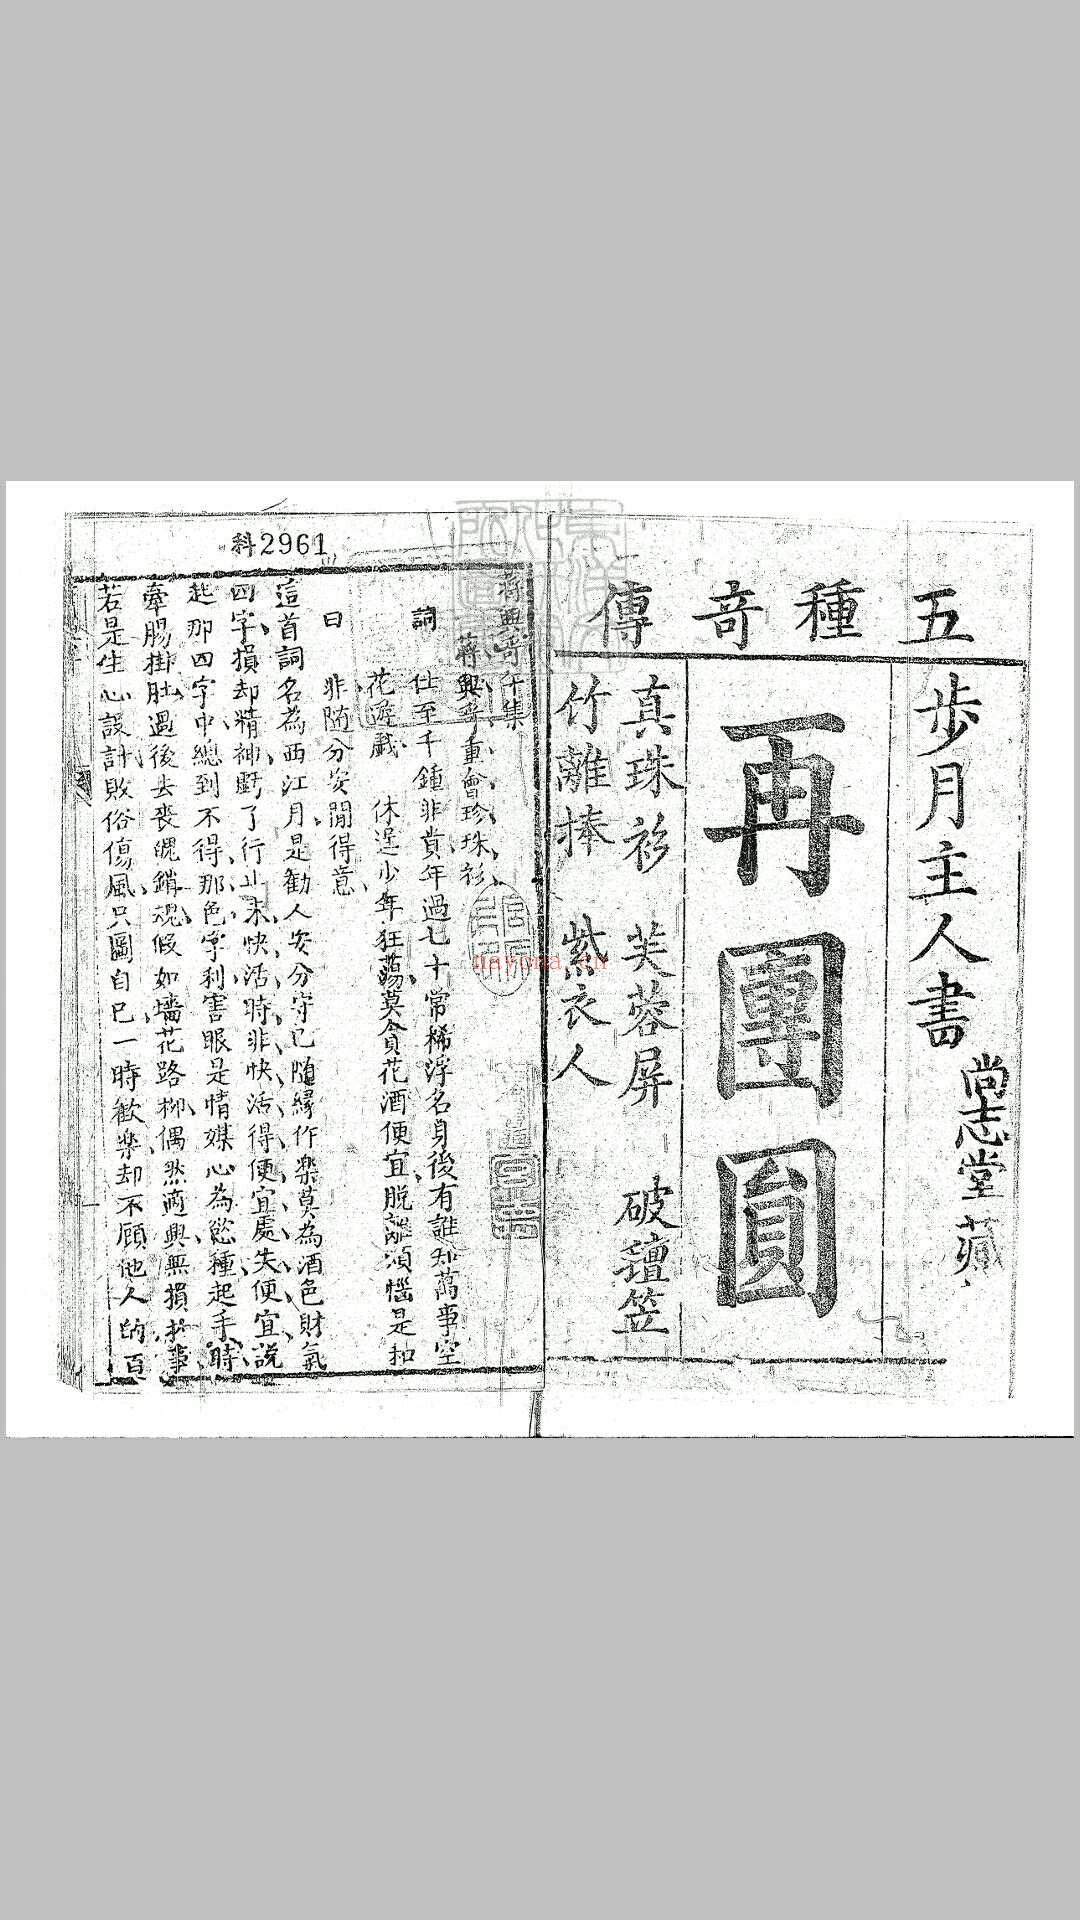 五種竒傳
步月主人書
尚志堂藏
再團圓
真珠衫 芙蓉屏 破氊笠
竹籬捧 紫衣人
科2961
蔣興哥重會珍珠衫
詞 仕至千鍾非貴年過七十常稀浮名身後有誰知萬事空
花遊戱 休逞少年狂蕩莫貪花酒便宜脱離煩惱是和
曰 非随分安閒得意
這首詞名為西江月是勸人安分守己隨緣作樂莫為酒色財氣
四字損却精神虧了行止求快活時非快活得便宜處失便宜説
起那四字中總到不得那色字利害眼是情媒心為慾種起手時
牽腸掛肚過後去喪魄銷魂假如墻花路柳偶然適興無損於事
若是生心設計敗俗傷風只圖自己一時歡樂却不顧他人的百